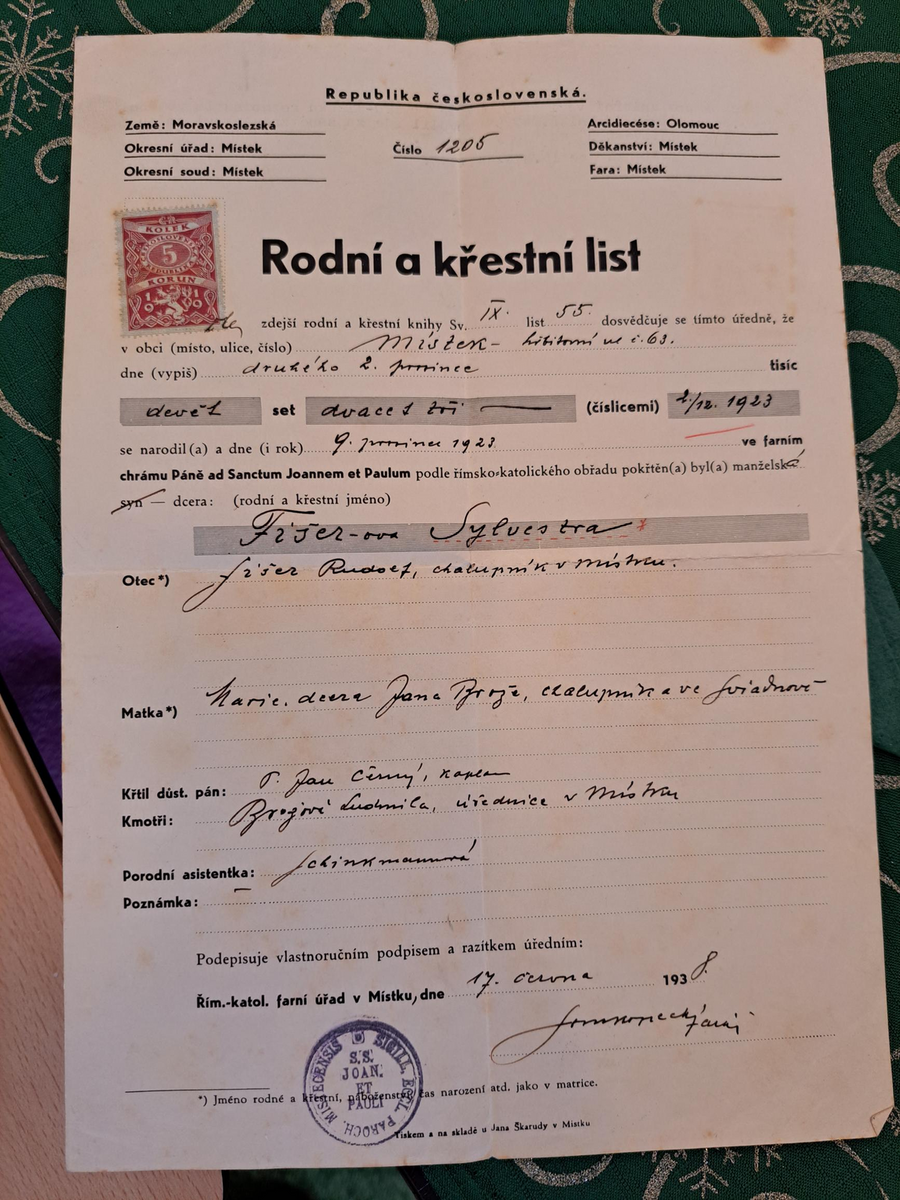 Republika československá.
Země: Moravskoslezská
Okresní úřad: Místek
Okresní soud: Místek
Číslo 1205
Arcidiecése: Olomouc
Děkanství: Místek
Fara: Místek
KOLEK
5
KORUN
Rodní a křestní list
zdejší rodní a křestní knihy Sv. IX. list 55. dosvědčuje se tímto úředně, že
v obci (místo, ulice, číslo) Místek - ul. č. 63.
dne (vypiš) druhého 2. prosince tisíc
devět set dvacet tři (číslicemi) 2/12. 1923
se narodil(a) a dne (i rok) 9. prosince 1923 ve farním
chrámu Páně ad Sanctum Joannem et Paulum podle římsko-katolického obřadu pokřtěn(a) byl(a) manželská
syn — dcera: (rodní a křestní jméno)
Fišer-ova Sylvestra *
Otec*) Fišer Rudolf, chalupník v Místku.
Matka*) Marie, dcera Jana Brože, chalupníka ve Sviadnově
Křtil důst. pán: P. Jan Černý, kaplan
Kmotři: Ludmila, úřednice v Místku
Porodní asistentka: Schinkmannová
Poznámka: —
Podepisuje vlastnoručním podpisem a razítkem úředním:
Řím.-katol. farní úřad v Místku, dne 17. června 1938.
SIGILL. ECCL. PAROCH. MISTECENSIS
S.S.
JOAN.
ET
PAULI
*) Jméno rodné a křestní, náboženství, čas narození atd. jako v matrice.
Tiskem a na skladě u Jana Škarudy v Místku